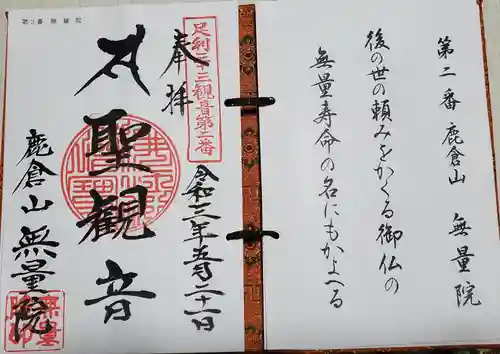 第二番 鹿倉山 無量院
後の世の頼みをかくる御仏の
無量寿命の名にもかよへる
第2番 無量院
足利三十三観音第二番
奉拝
令和三年五月二十一日
聖観音
鹿倉山 無量院